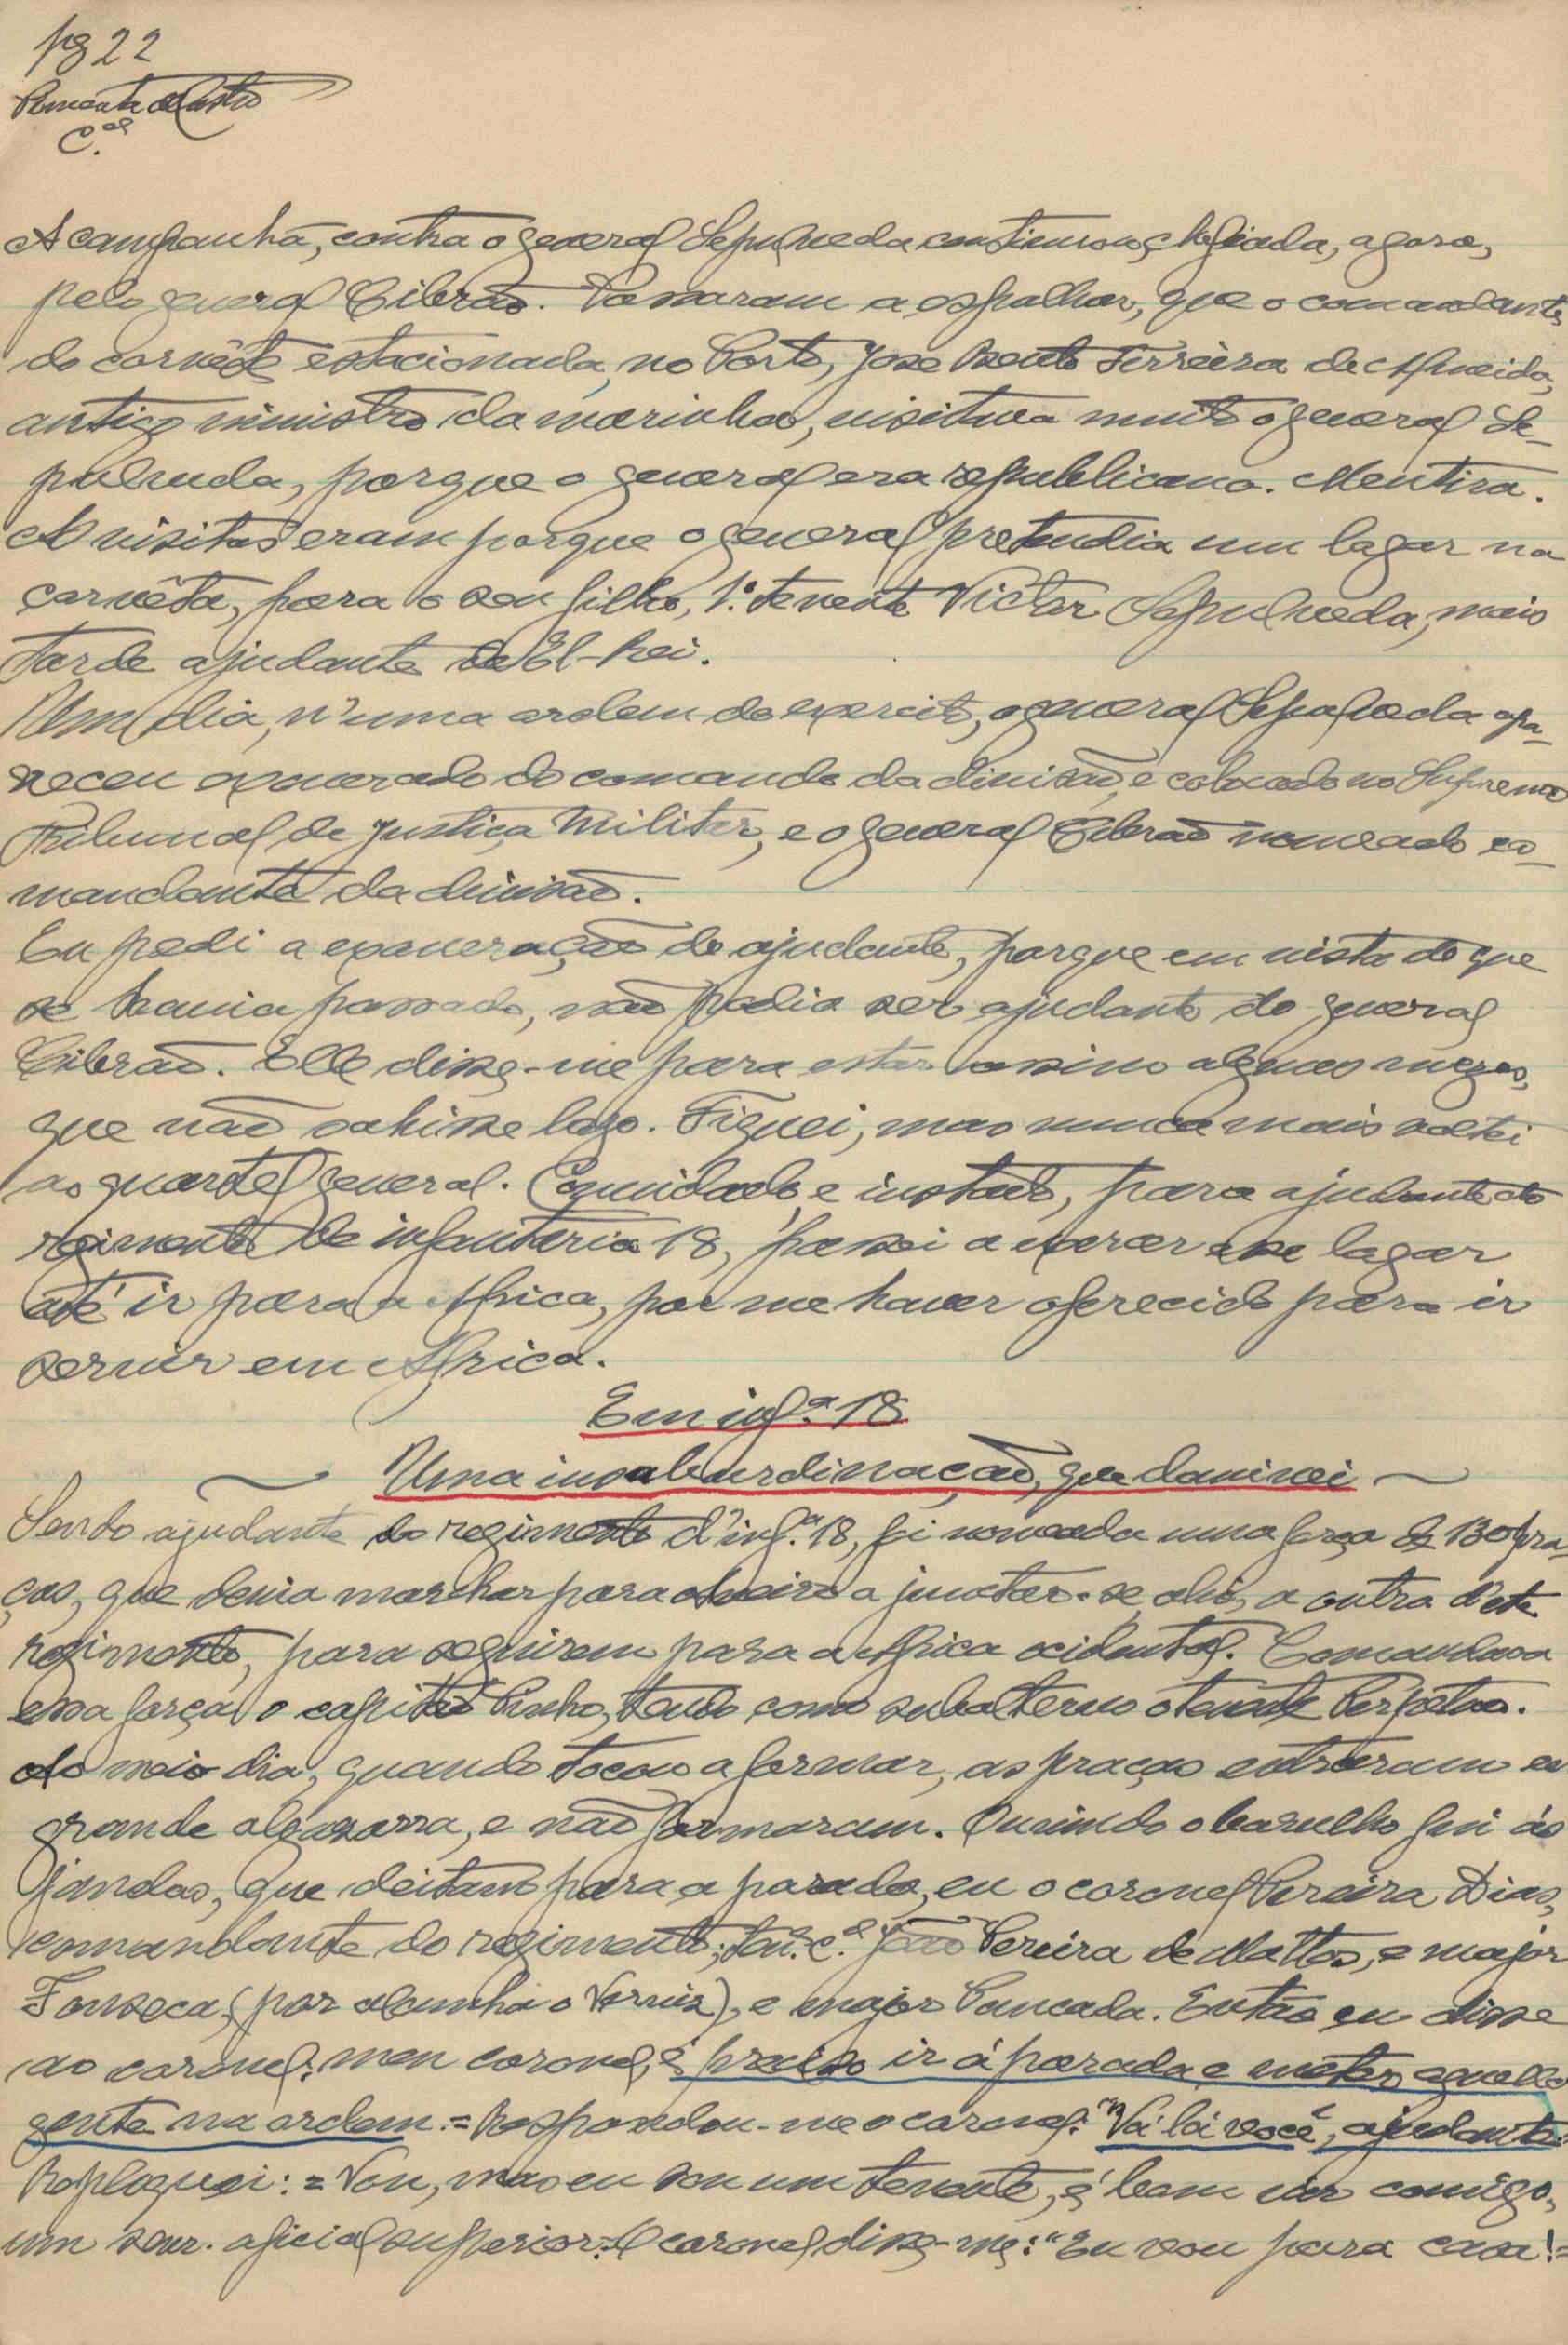 pg 22
Pimenta de Castro
C.el
A campanha, contra o general Sepulveda continuou, chefiada, agora,
pelo general Cibrão. Passaram a espalhar, que o comandante
da corvêta estacionada, no Porto, José Bento Ferreira de Almeida,
antigo ministro da marinha, visitava muito o general Se-
pulveda, porque o general era republicano. Mentira.
As visitas eram porque o general pretendia um logar na
corvêta, para o seu filho, 1.º tenente Victor Sepulveda, mais
tarde ajudante de El-Rei.
Um dia, n'uma ordem do exercito, o general Sepulveda apa-
receu exonerado do comando da divisão, e colocado no Supremo
Tribunal de Justiça Militar, e o general Cibrão nomeado co-
mandante da divisão.
Eu pedi a exoneração de ajudante, porque em vista do que
se havia passado, não podia ser ajudante do general
Cibrão. Elle disse-me para estar assim alguns mezes,
que não sahisse logo. Fiquei, mas nunca mais voltei
ao quartel general. Convidado, e instado, para ajudante do
regimento de infanteria 18, passei a exercer esse logar
até ir para a Africa, por me haver oferecido para ir
servir em Africa.
Em inf.ª 18
Uma insubordinação, que dominei
Sendo ajudante do regimento d'inf.ª 18, foi nomeada uma força de 130 pra-
ças, que devia marchar para Aveiro a juntar-se, ahi, a outra d'este
regimento, para seguirem para a Africa ocidental. Comandava
essa força o capitão Pinho, tendo como subalterno o tenente Perpetuo.
Ao meio dia, quando tocou a formar, as praças entraram em
grande algazarra, e não formaram. Ouvindo o barulho fui ás
janelas, que deitam para a parada, eu o coronel Pereira Dias,
comandante do regimento; ten. c.el João Pereira de Mattos, e major
Fonseca, (por alcunha o Verniz), e major Pancada. Então eu disse
ao coronel: meu coronel, é preciso ir á parada e meter aquella
gente na ordem = Respondeu-me o coronel: "Vá lá você, ajudante"
Repliquei: = Vou, mas eu sou um tenente, é bom vir comigo,
um snr. oficial superior. O coronel disse-me: "Eu vou para casa! =